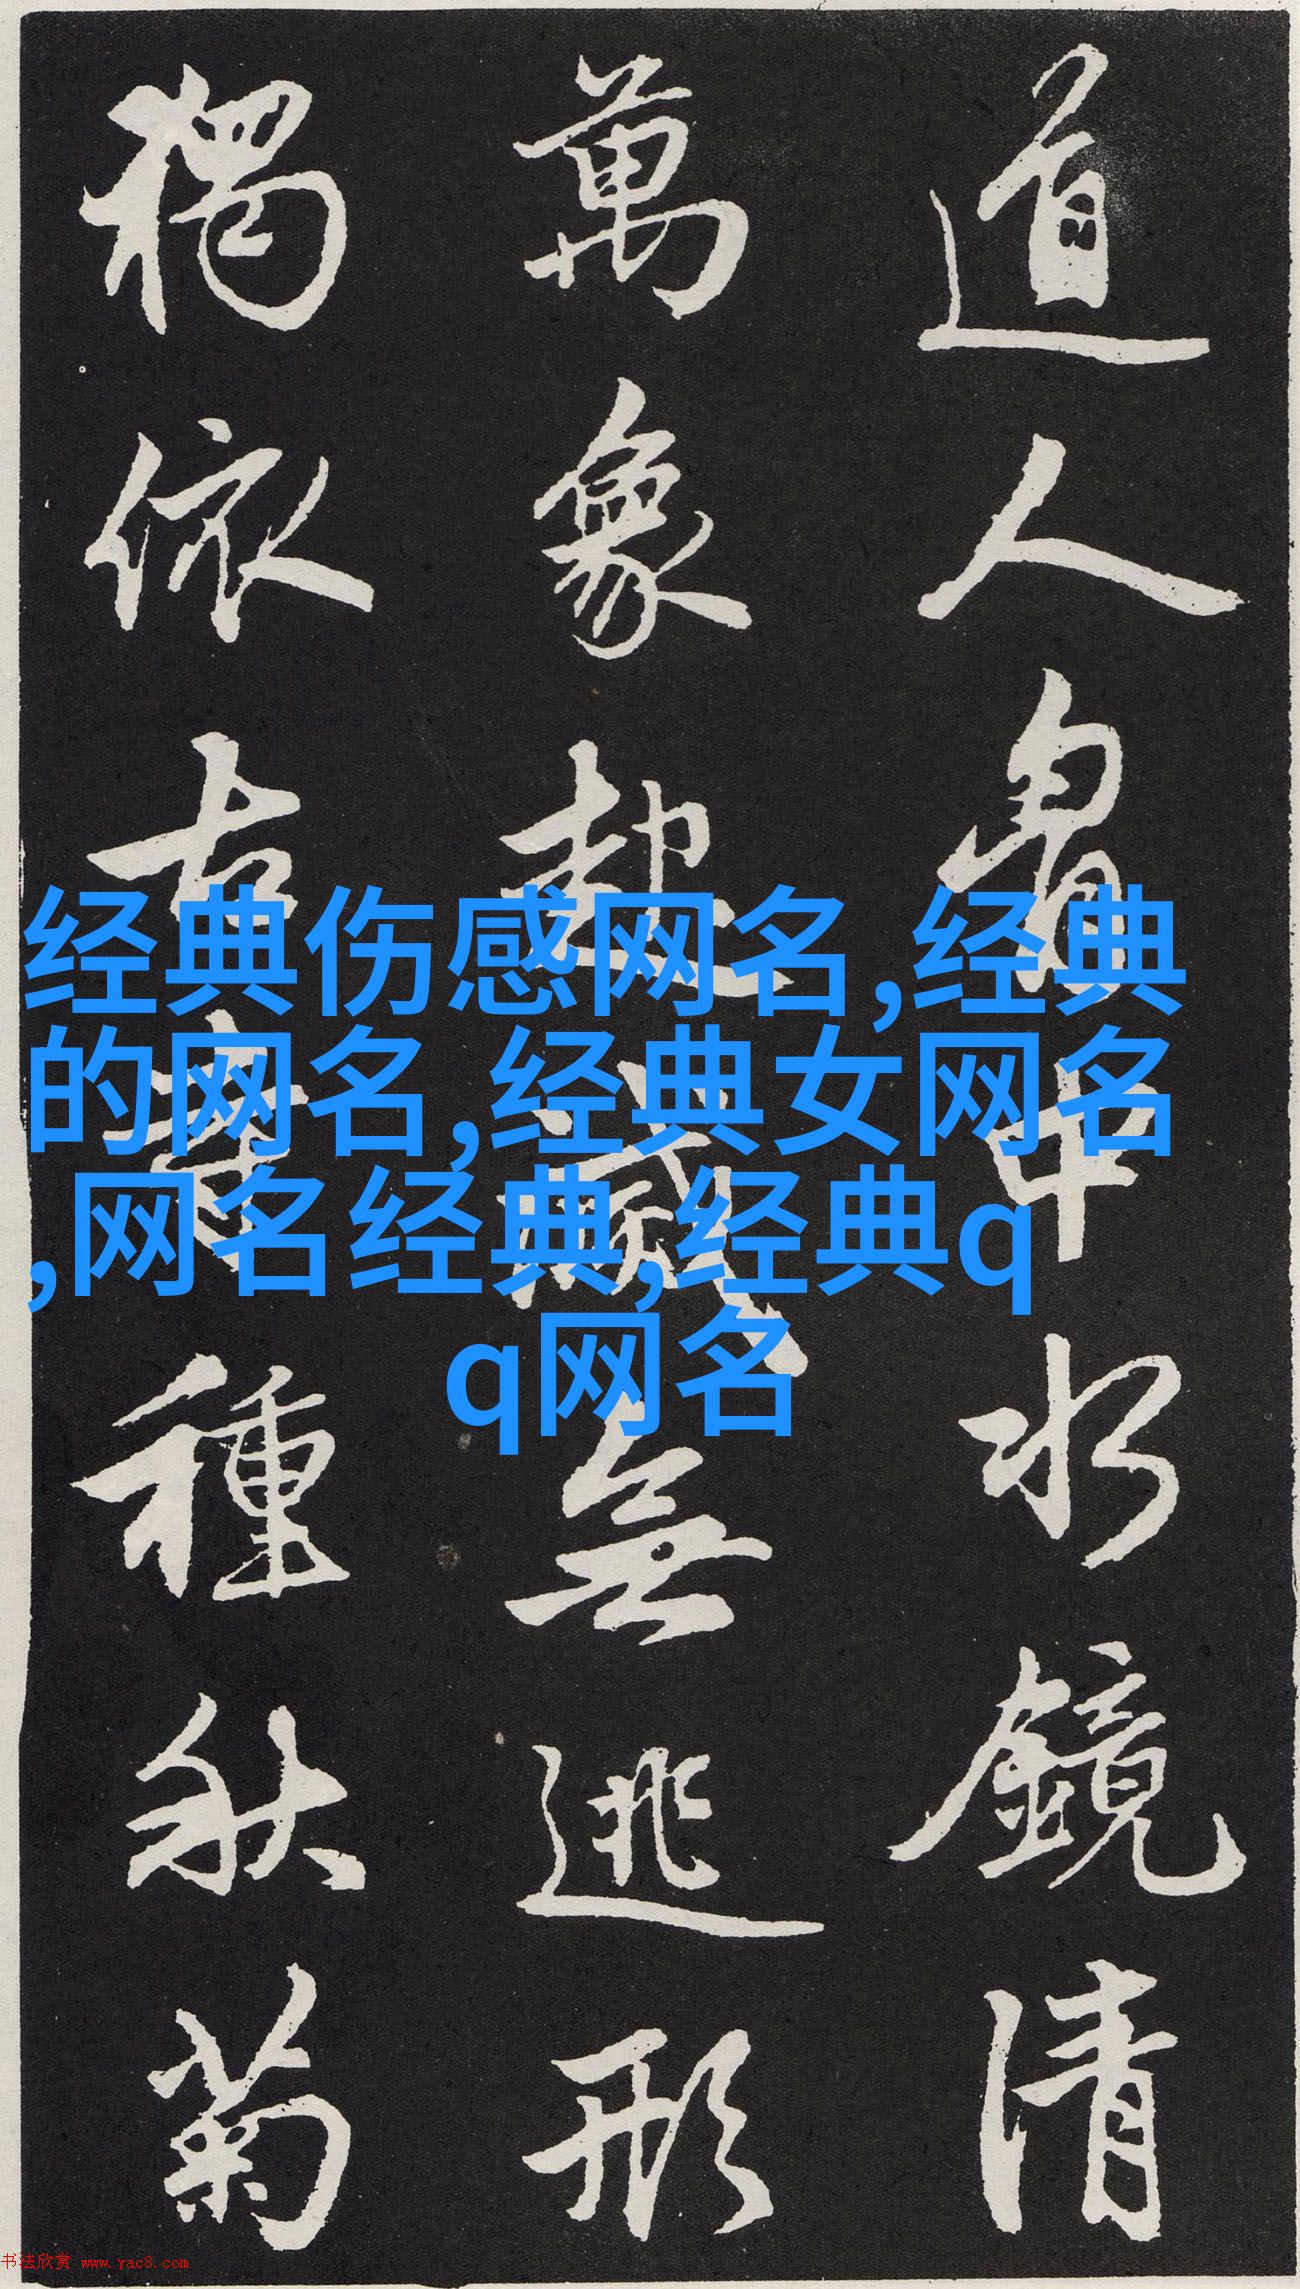 道人胷中水鏡清
萬象起滅無逃形
獨依古寺種秋菊
经典伤感网名,经典
的网名,经典女网名
,网名经典,经典q
q网名
书法欣赏 www.yac8.com